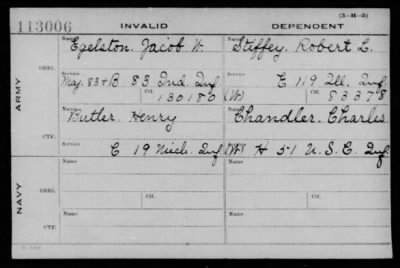 (3-H-3)
113006 INVALID DEPENDENT
Name Name
Egelston, Jacob W. Stiffey, Robert L.
ARMY
ORIG.
Service Service
May. 83 + B 83 Ind. Inf E 119 Ill. Inf
Ctf. 130180 (W) Ctf. 83378
Name Name
Butler, Henry Chandler, Charles
CTF.
Service
C 19 Mich. Inf (W) H 51 U.S.C. Inf
NAVY
Name Name
ORIG.
Ctf. Ctf.
Name Name
CTF.